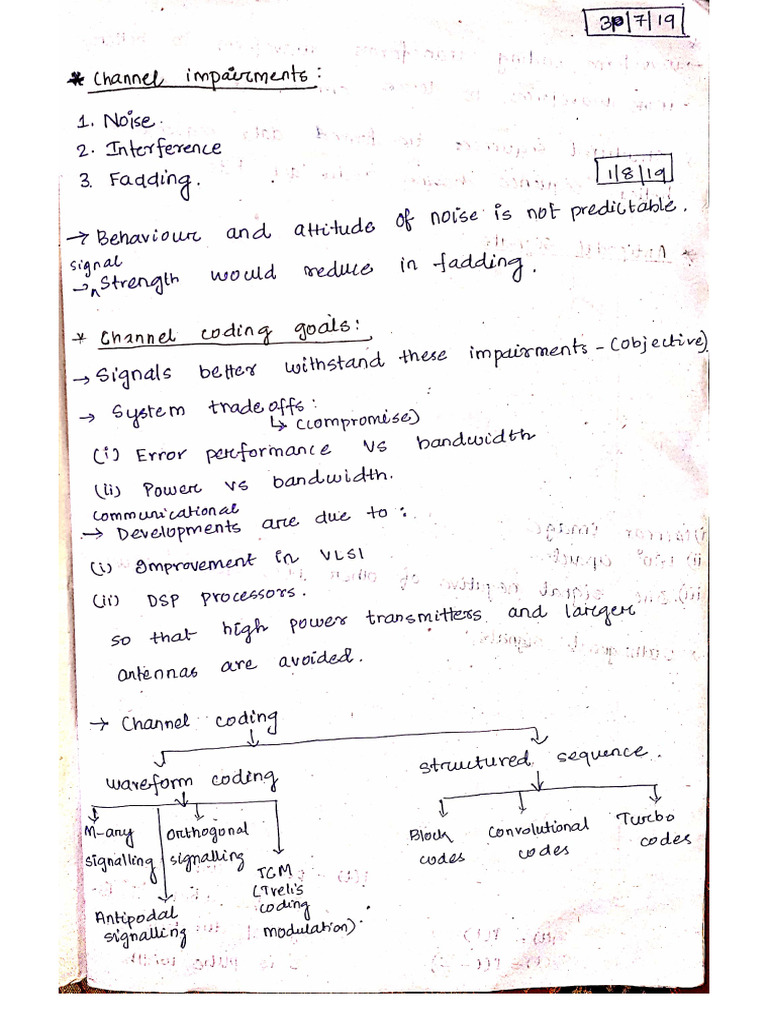 30/7/19
* Channel impairments:
1. Noise.
2. Interference
3. Fadding.
1/8/19
→ Behaviour and attitude of noise is not predictable.
→ signal strength would reduce in fadding.
* Channel coding goals:
→ Signals better withstand these impairments - (objective)
→ System tradeoffs:
↳ (compromise)
(i) Error performance vs bandwidth
(ii) Power vs bandwidth.
communicational
→ Developments are due to:
(i) Improvement in VLSI
(ii) DSP processors.
so that high power transmitters and larger
antennas are avoided.
→ Channel coding
waveform coding
structured sequence.
M-any signalling
Orthogonal signalling
Antipodal signalling
TCM (Trelis coding modulation).
Block codes
Convolutional codes
Turbo codes